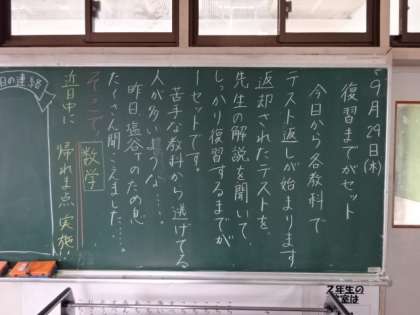 9月29日(木)
復習までがセット
今日から各教科で
テスト返しが始まります
返却されたテストを、
先生の解説を聞いて、
しっかり復習するまでが
1セットです。
苦手な教科から逃げてる
人が多いような……。
昨日、塩谷Tのため息
たくさん聞こえました……。
そこで、数学
近日中に 帰れま点 実施!!
日の連絡
2年生の
教室は